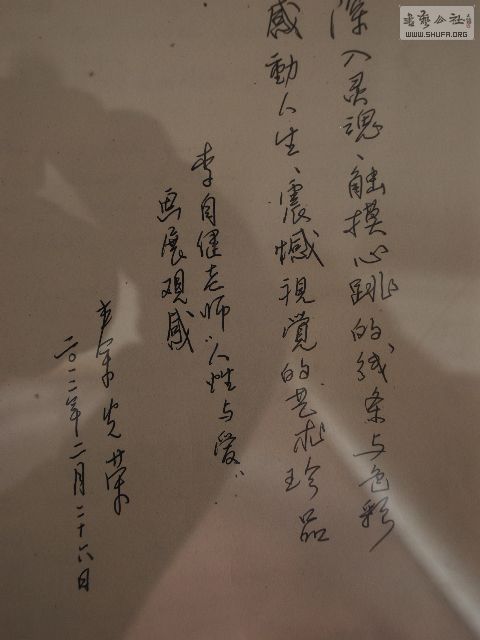 深入灵魂、触摸心跳的线条与色彩
感動人生、震憾視覺的艺术珍品
李自健老师“人性与爱”
画展观感
光荣
二〇一二年二月二十六日
書藝公社
WWW.SHUFA.ORG